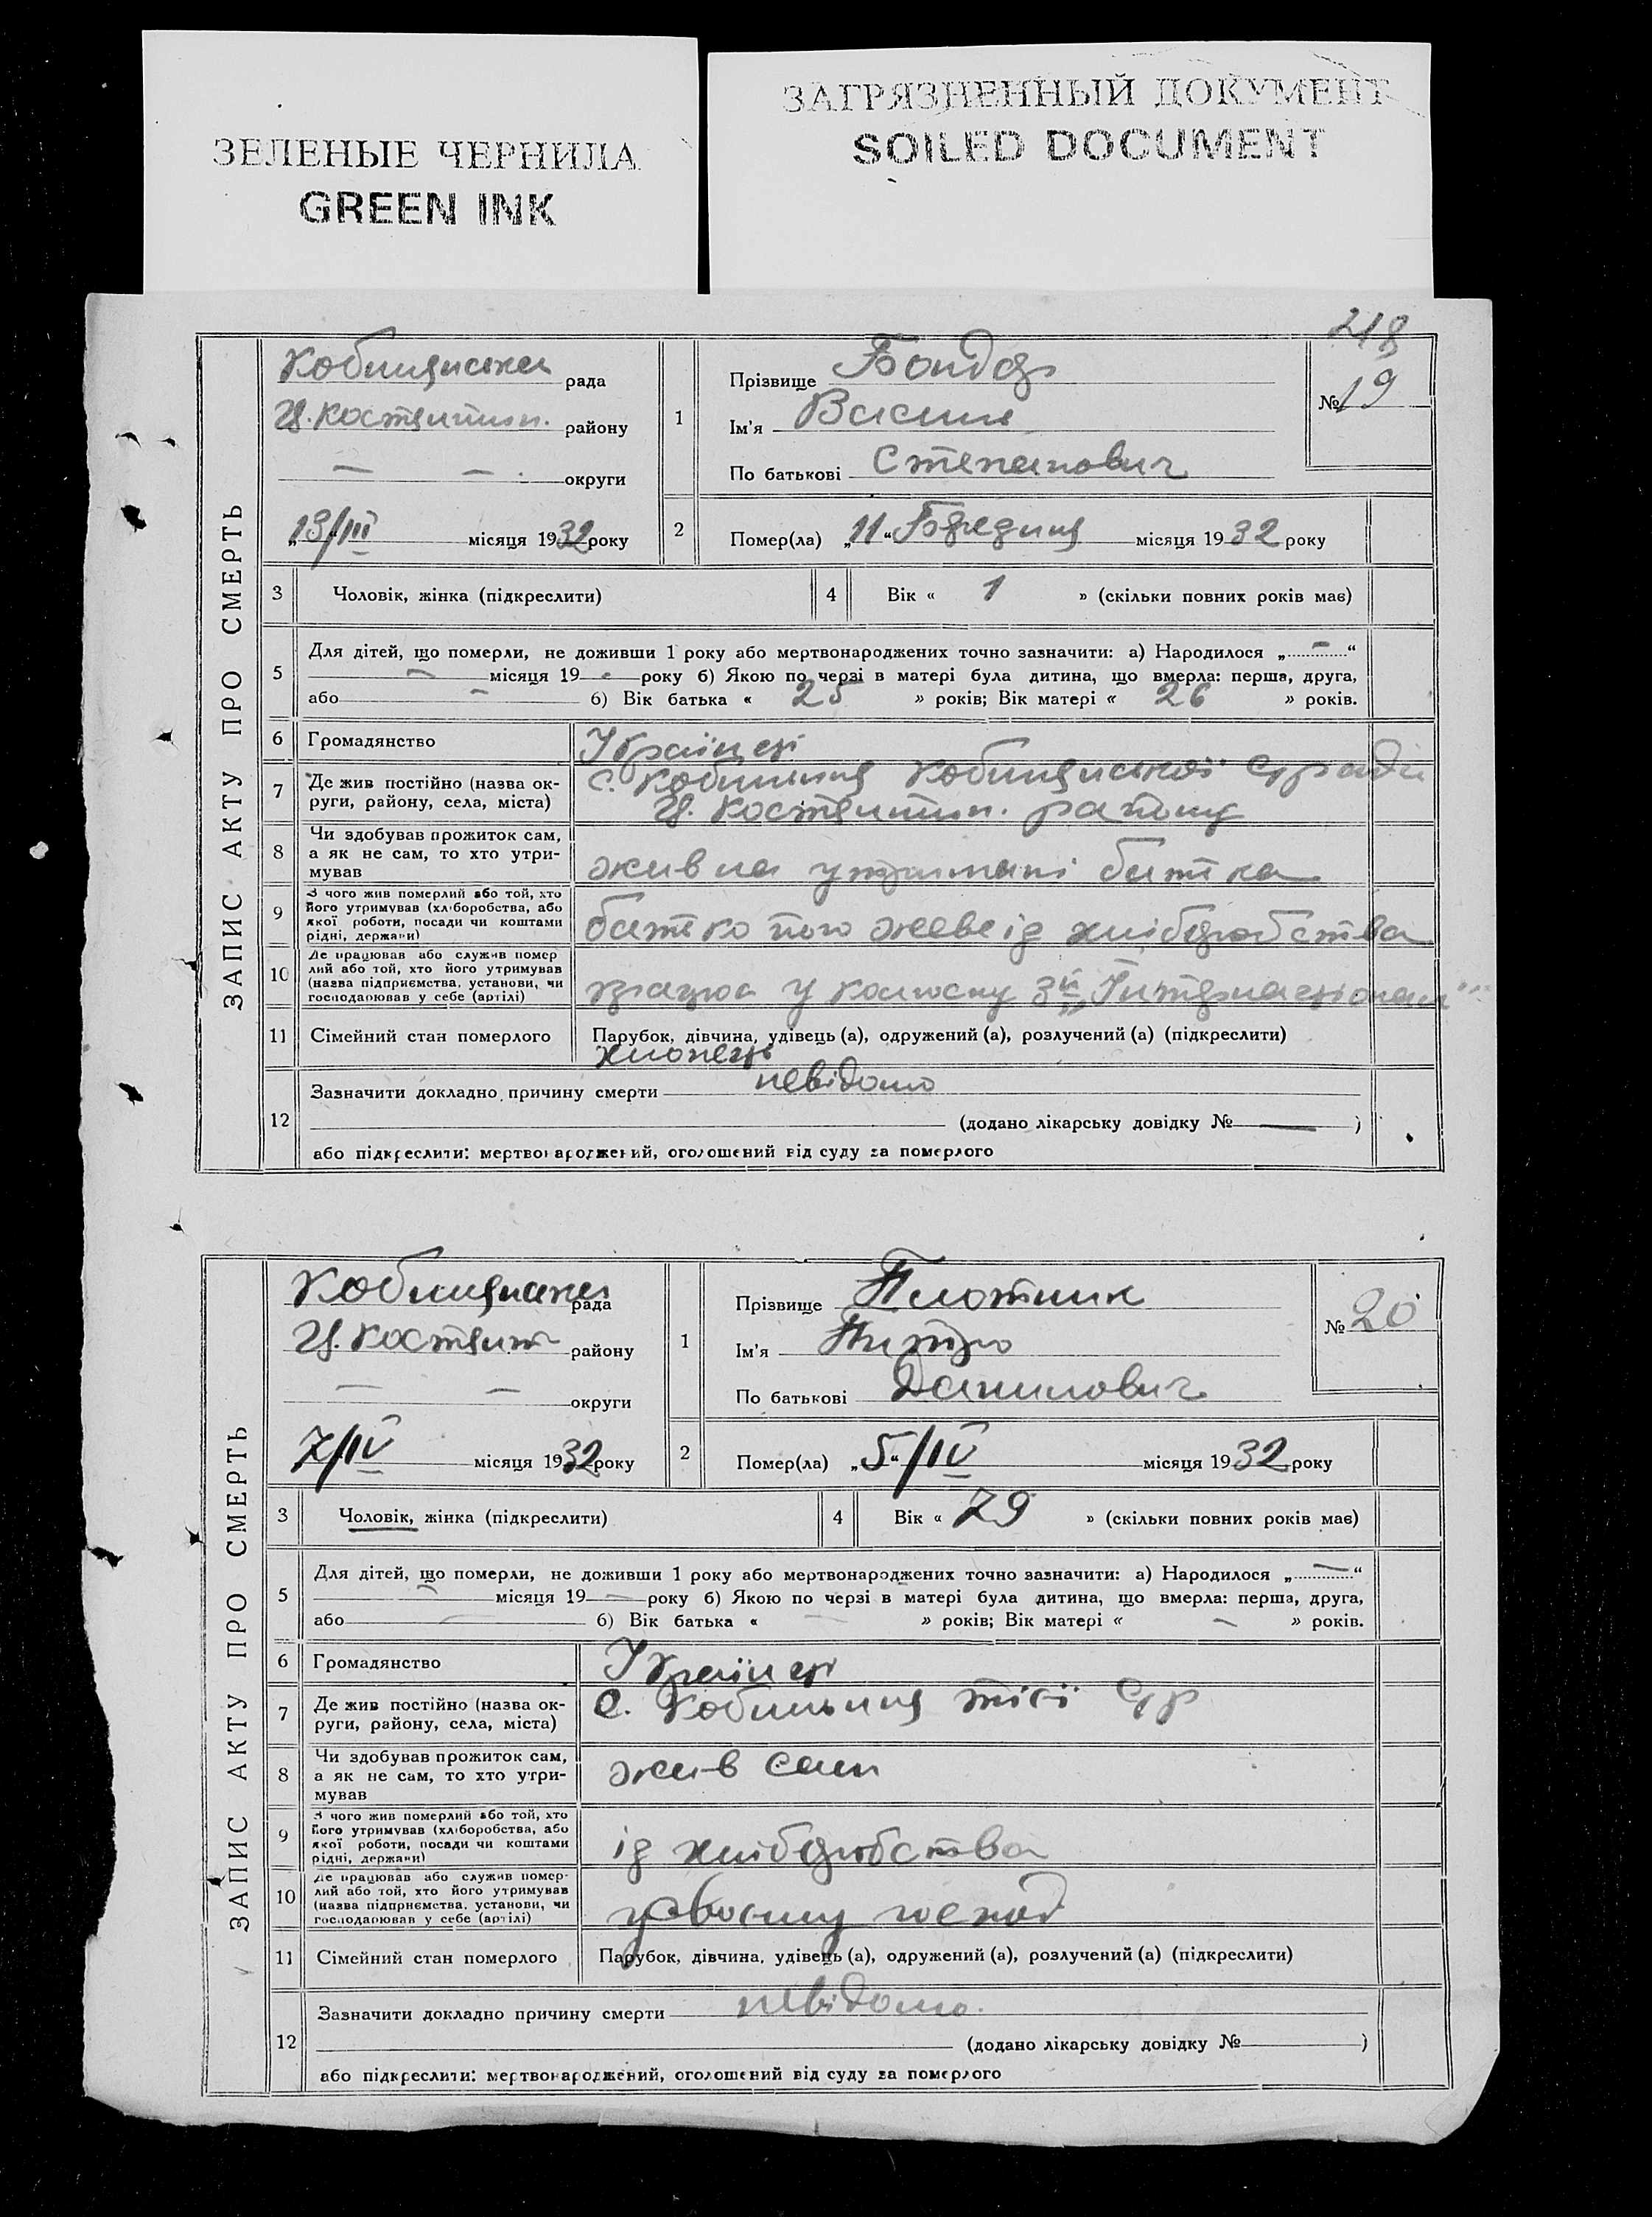 ЗЕЛЕНЫЕ ЧЕРНИЛА
GREEN INK
ЗАГРЯЗНЕННЫЙ ДОКУМЕНТ
SOILED DOCUMENT
218
ЗАПИС АКТУ ПРО СМЕРТЬ
рада
району
— — округи
„13/III місяця 1932 року
1
Прізвище Бондар
Ім'я Василь
По батькові Степанович
№ 19
2 Помер(ла) „11“ Березня місяця 1932 року
3 Чоловік, жінка (підкреслити)
4 Вік « 1 » (скільки повних років має)
5 Для дітей, що померли, не доживши 1 року або мертвонароджених точно зазначити: а) Народилося „ — “
— місяця 19 - року б) Якою по черзі в матері була дитина, що вмерла: перша, друга,
або — б) Вік батька « 25 » років; Вік матері « 26 » років.
6 Громадянство Українці
7 Де жив постійно (назва ок-
руги, району, села, міста)
8 Чи здобував прожиток сам,
а як не сам, то хто утри-
мував
жив на утримані батька
9 З чого жив померлий або той, хто
його утримував (хліборобства, або
якої роботи, посади чи коштами
рідні, держави)
батько його живе із хліборобства
10 Де працював або служив помер
лий або той, хто його утримував
(назва підприємства, установи, чи
господарював у себе (артілі)
у колгоспу 3й „Інтернаціонал"
11 Сімейний стан померлого Парубок, дівчина, удівець (а), одружений (а), розлучений (а) (підкреслити)
хлопець
12 Зазначити докладно причину смерти невідомо
(додано лікарську довідку № — )
або підкреслити: мертвонароджений, оголошений від суду за померлого
ЗАПИС АКТУ ПРО СМЕРТЬ
рада
району
— — округи
7/IV місяця 1932 року
1
Прізвище Плотник
Ім'я Питро
По батькові Данилович
№ 20
2 Помер(ла) „5“/IV місяця 1932 року
3 Чоловік, жінка (підкреслити)
4 Вік « 79 » (скільки повних років має)
5 Для дітей, що померли, не доживши 1 року або мертвонароджених точно зазначити: а) Народилося „ — “
— місяця 19 — року б) Якою по черзі в матері була дитина, що вмерла: перша, друга,
або — б) Вік батька « — » років; Вік матері « — » років.
6 Громадянство Українці
7 Де жив постійно (назва ок-
руги, району, села, міста)
8 Чи здобував прожиток сам,
а як не сам, то хто утри-
мував
жив сам
9 З чого жив померлий або той, хто
його утримував (хліборобства, або
якої роботи, посади чи коштами
рідні, держави)
із хліборобства
10 Де працював або служив помер-
лий або той, хто його утримував
(назва підприємства, установи, чи
господарював у себе (артілі)
у своєму господ
11 Сімейний стан померлого Парубок, дівчина, удівець (а), одружений (а), розлучений (а) (підкреслити)
12 Зазначити докладно причину смерти невідомо
(додано лікарську довідку № )
або підкреслити: мертвонароджений, оголошений від суду за померлого